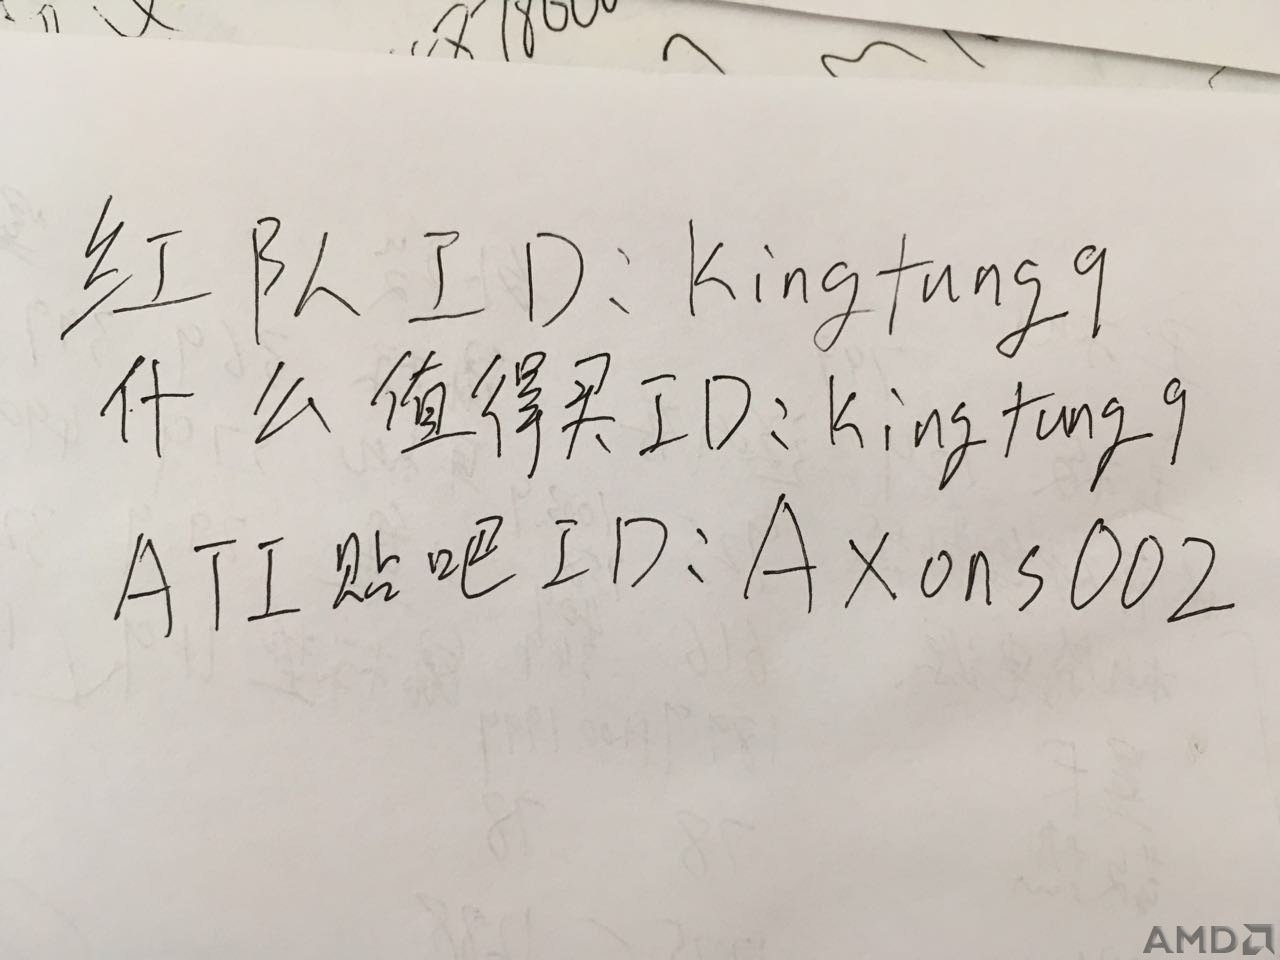 红队ID:kingtung9
什么值得买ID:kingtung9
ATI贴吧ID:Axons002
AMD